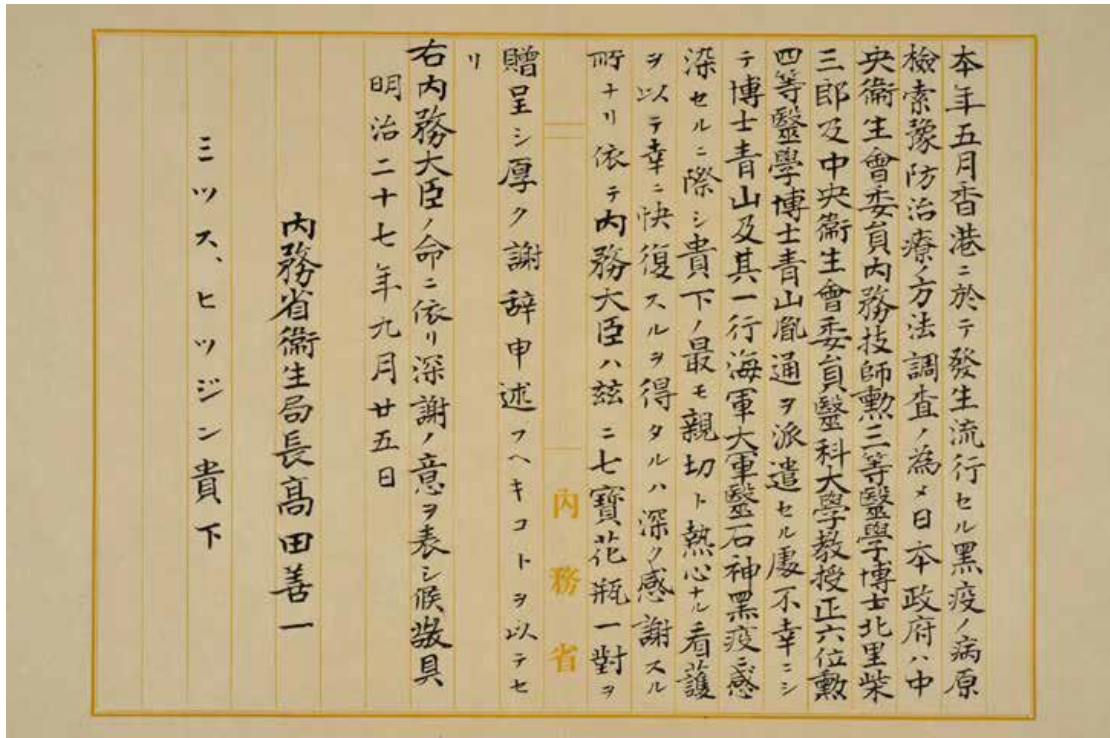 本年五月香港ニ於テ發生流行セル黑疫ノ病原
檢索豫防治療ノ方法調查ノ為メ日本政府ハ中
央衞生會委員內務技師勲三等醫學博士北里柴
三郎及中央衞生會委員醫科大學教授正六位勲
四等醫學博士青山胤通ヲ派遣セル處不幸ニシ
テ博士青山及其一行海軍大軍醫石神黑疫ニ感
染セルニ際シ貴下ノ最モ親切ト熱心ナル看護
ヲ以テ幸ニ快復スルヲ得タルハ深ク感謝スル
所ナリ依テ內務大臣ハ茲ニ七寶花瓶一對ヲ
內務省
贈呈シ厚ク謝辞申述フヘキコトヲ以テセ
リ
右內務大臣ノ命ニ依リ深謝ノ意ヲ表シ候敬具
明治二十七年九月廿五日
內務省衞生局長高田善一
ミツス、ヒツジン貴下